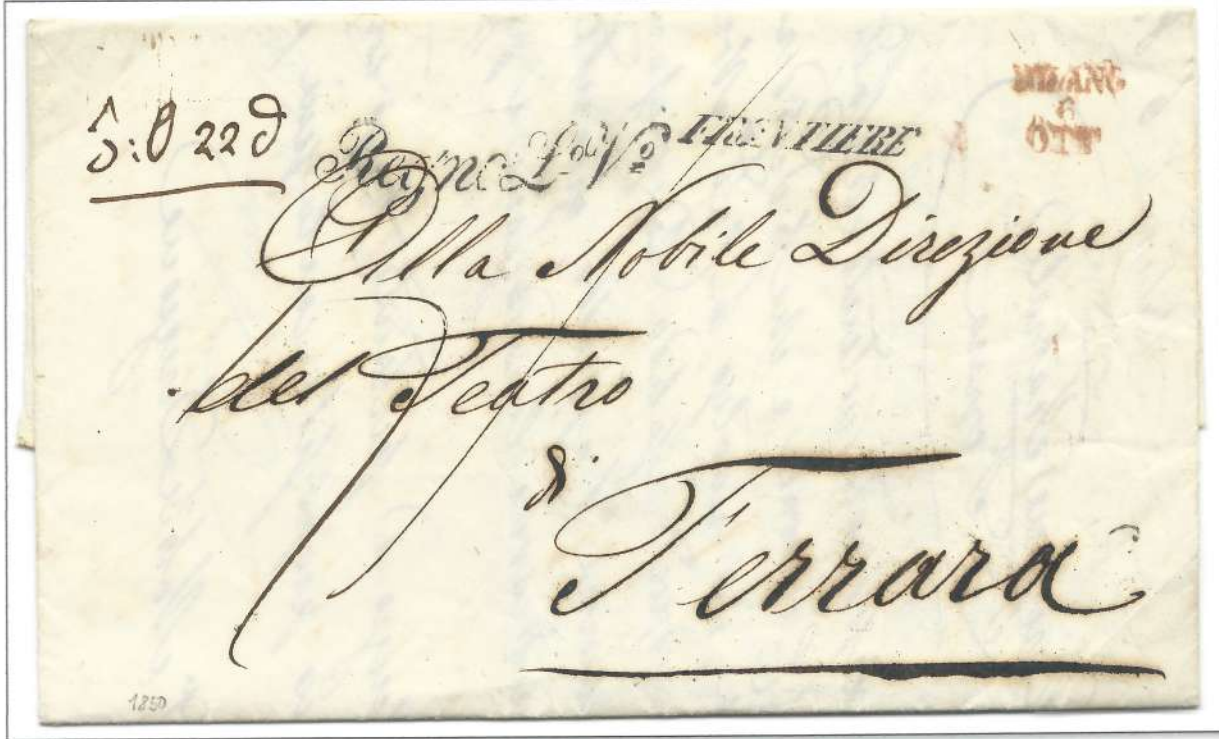 22
Regno L.º V.º FRONTIERE
MILANO
OTT
Alla Nobile Direzione
del Teatro
di
Ferrara
1850